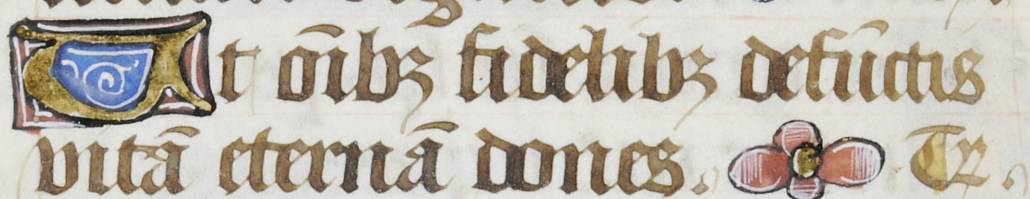 Ut o̅ibꝫ fidelibꝫ defu̅ctis
vitā eternā dones. Te